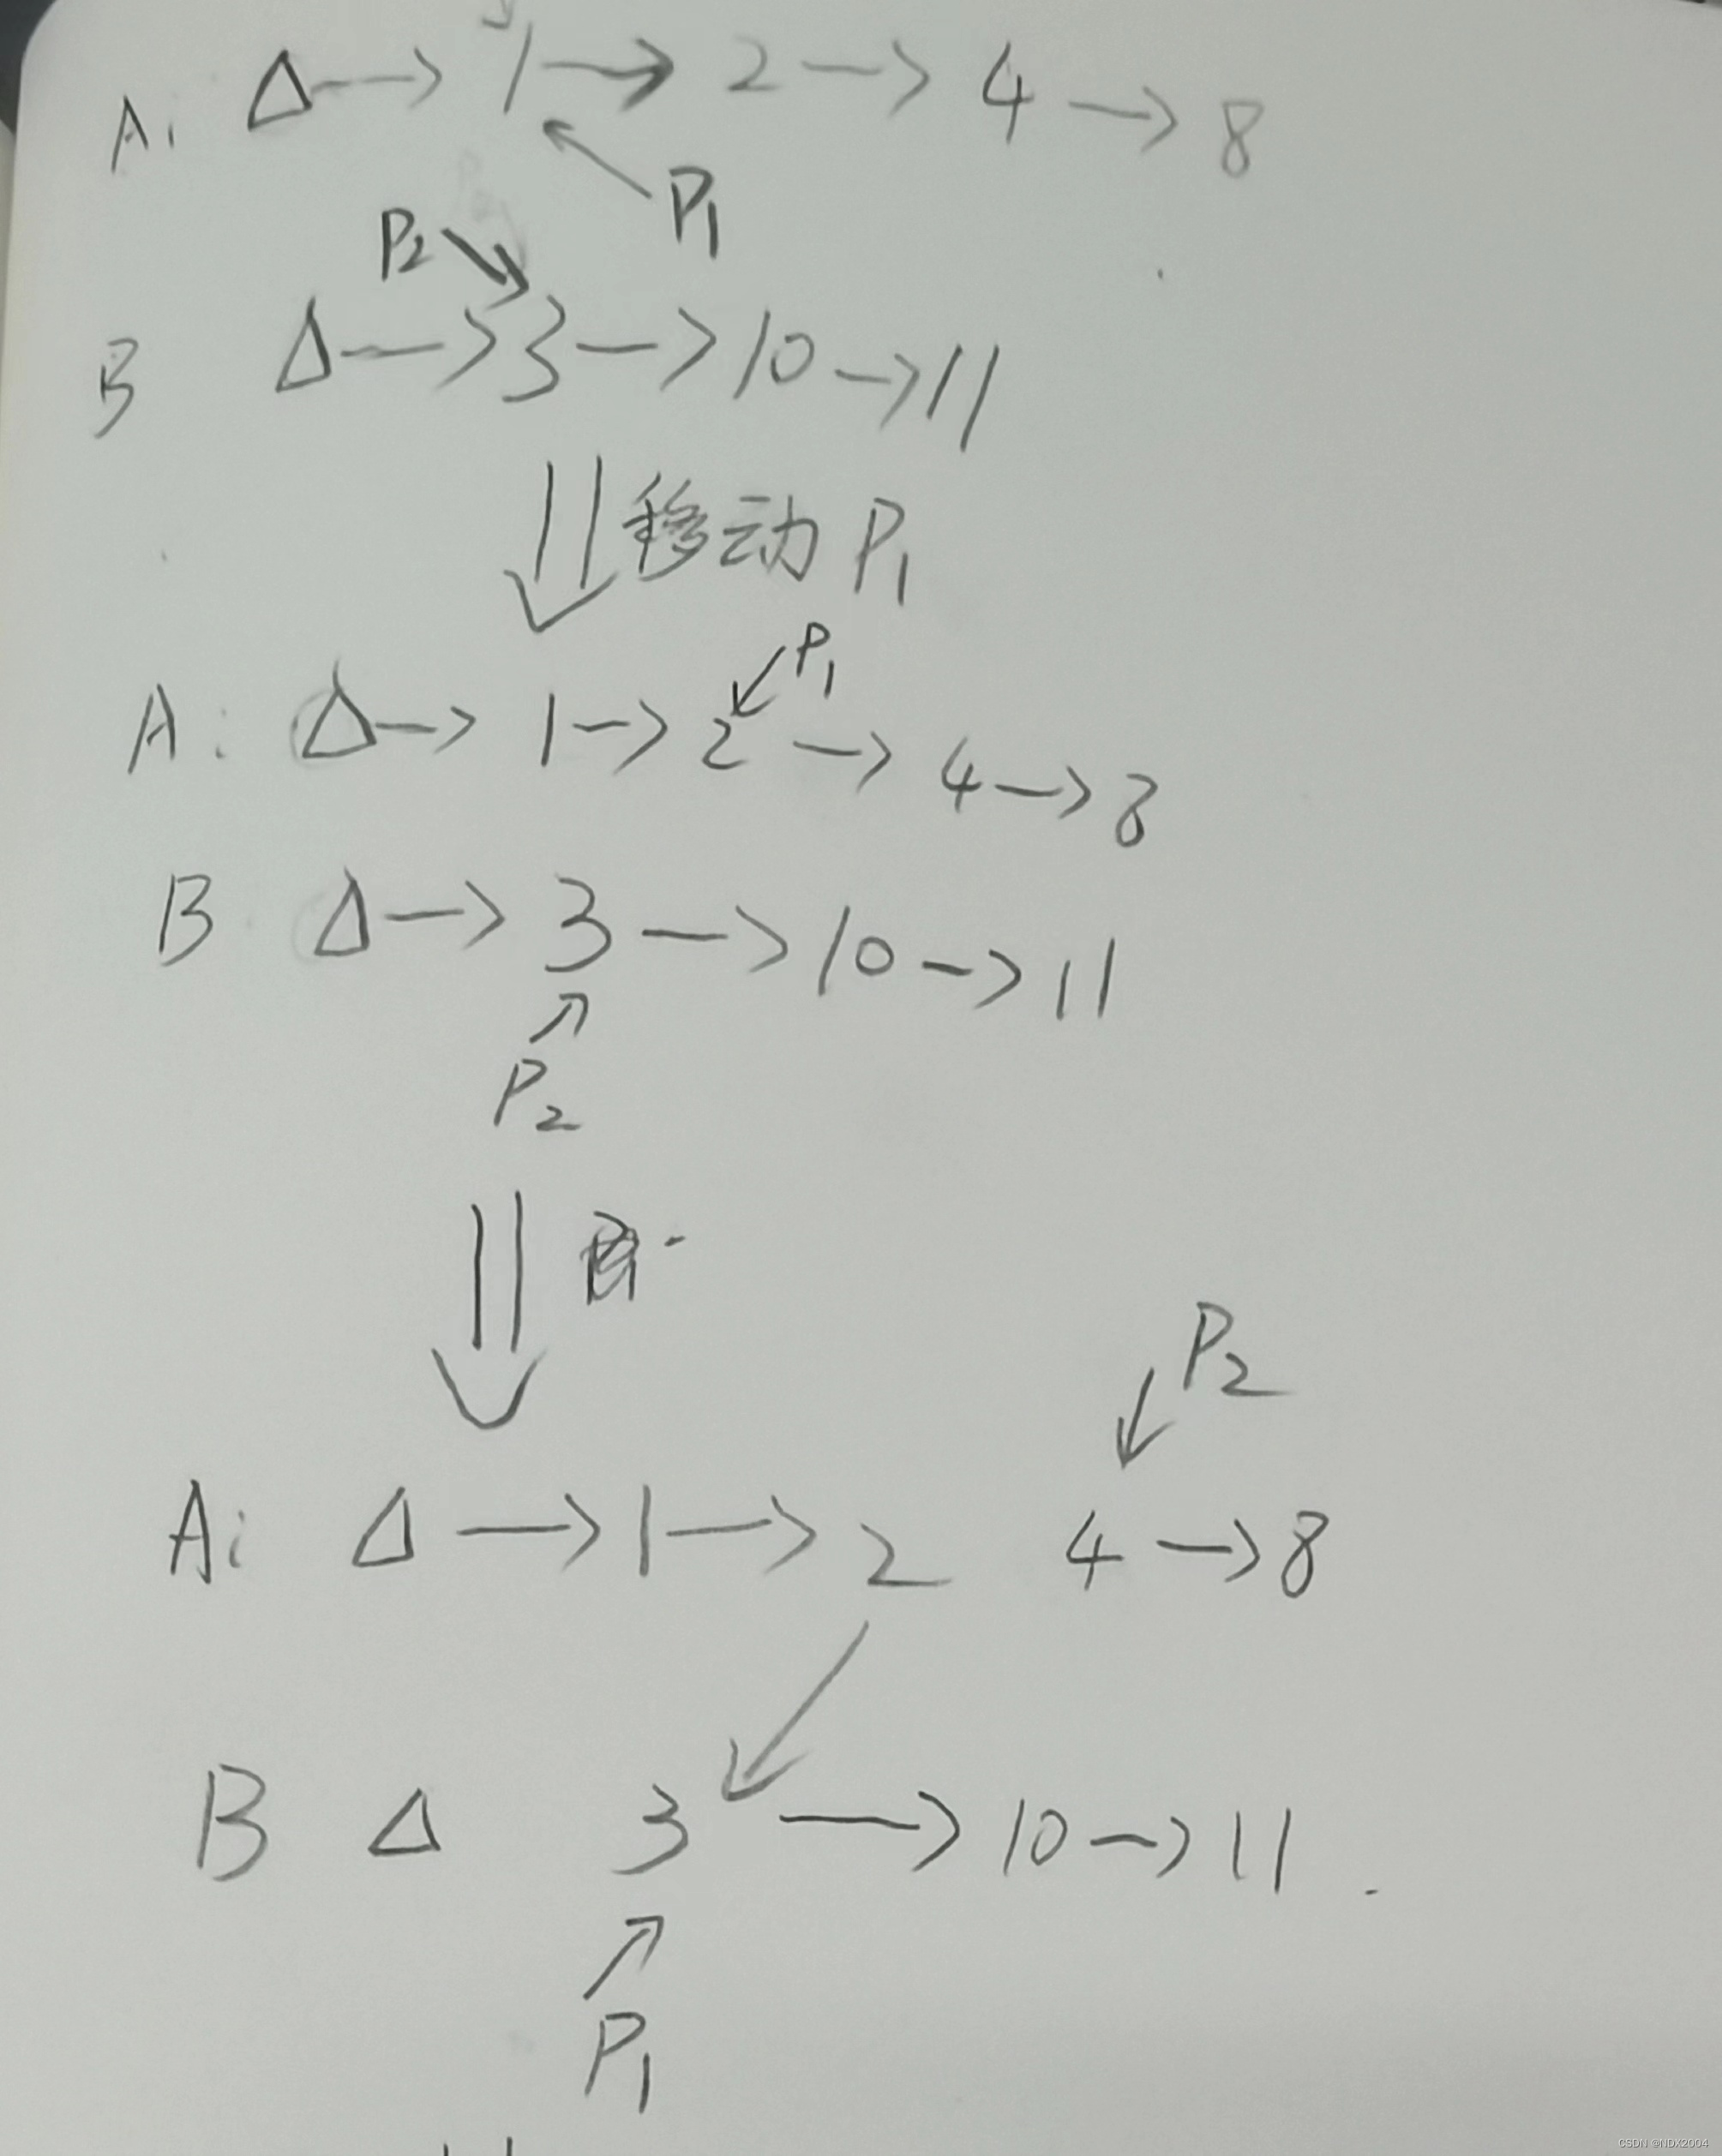 P1
A: Δ → 1 → 2 → 4 → 8
P2
B Δ → 3 → 10 → 11
移动 P1
P1
A: Δ → 1 → 2 → 4 → 8
B Δ → 3 → 10 → 11
P2
P2
A: Δ → 1 → 2 4 → 8
B Δ 3 → 10 → 11
P1
CSDN @NDX2004